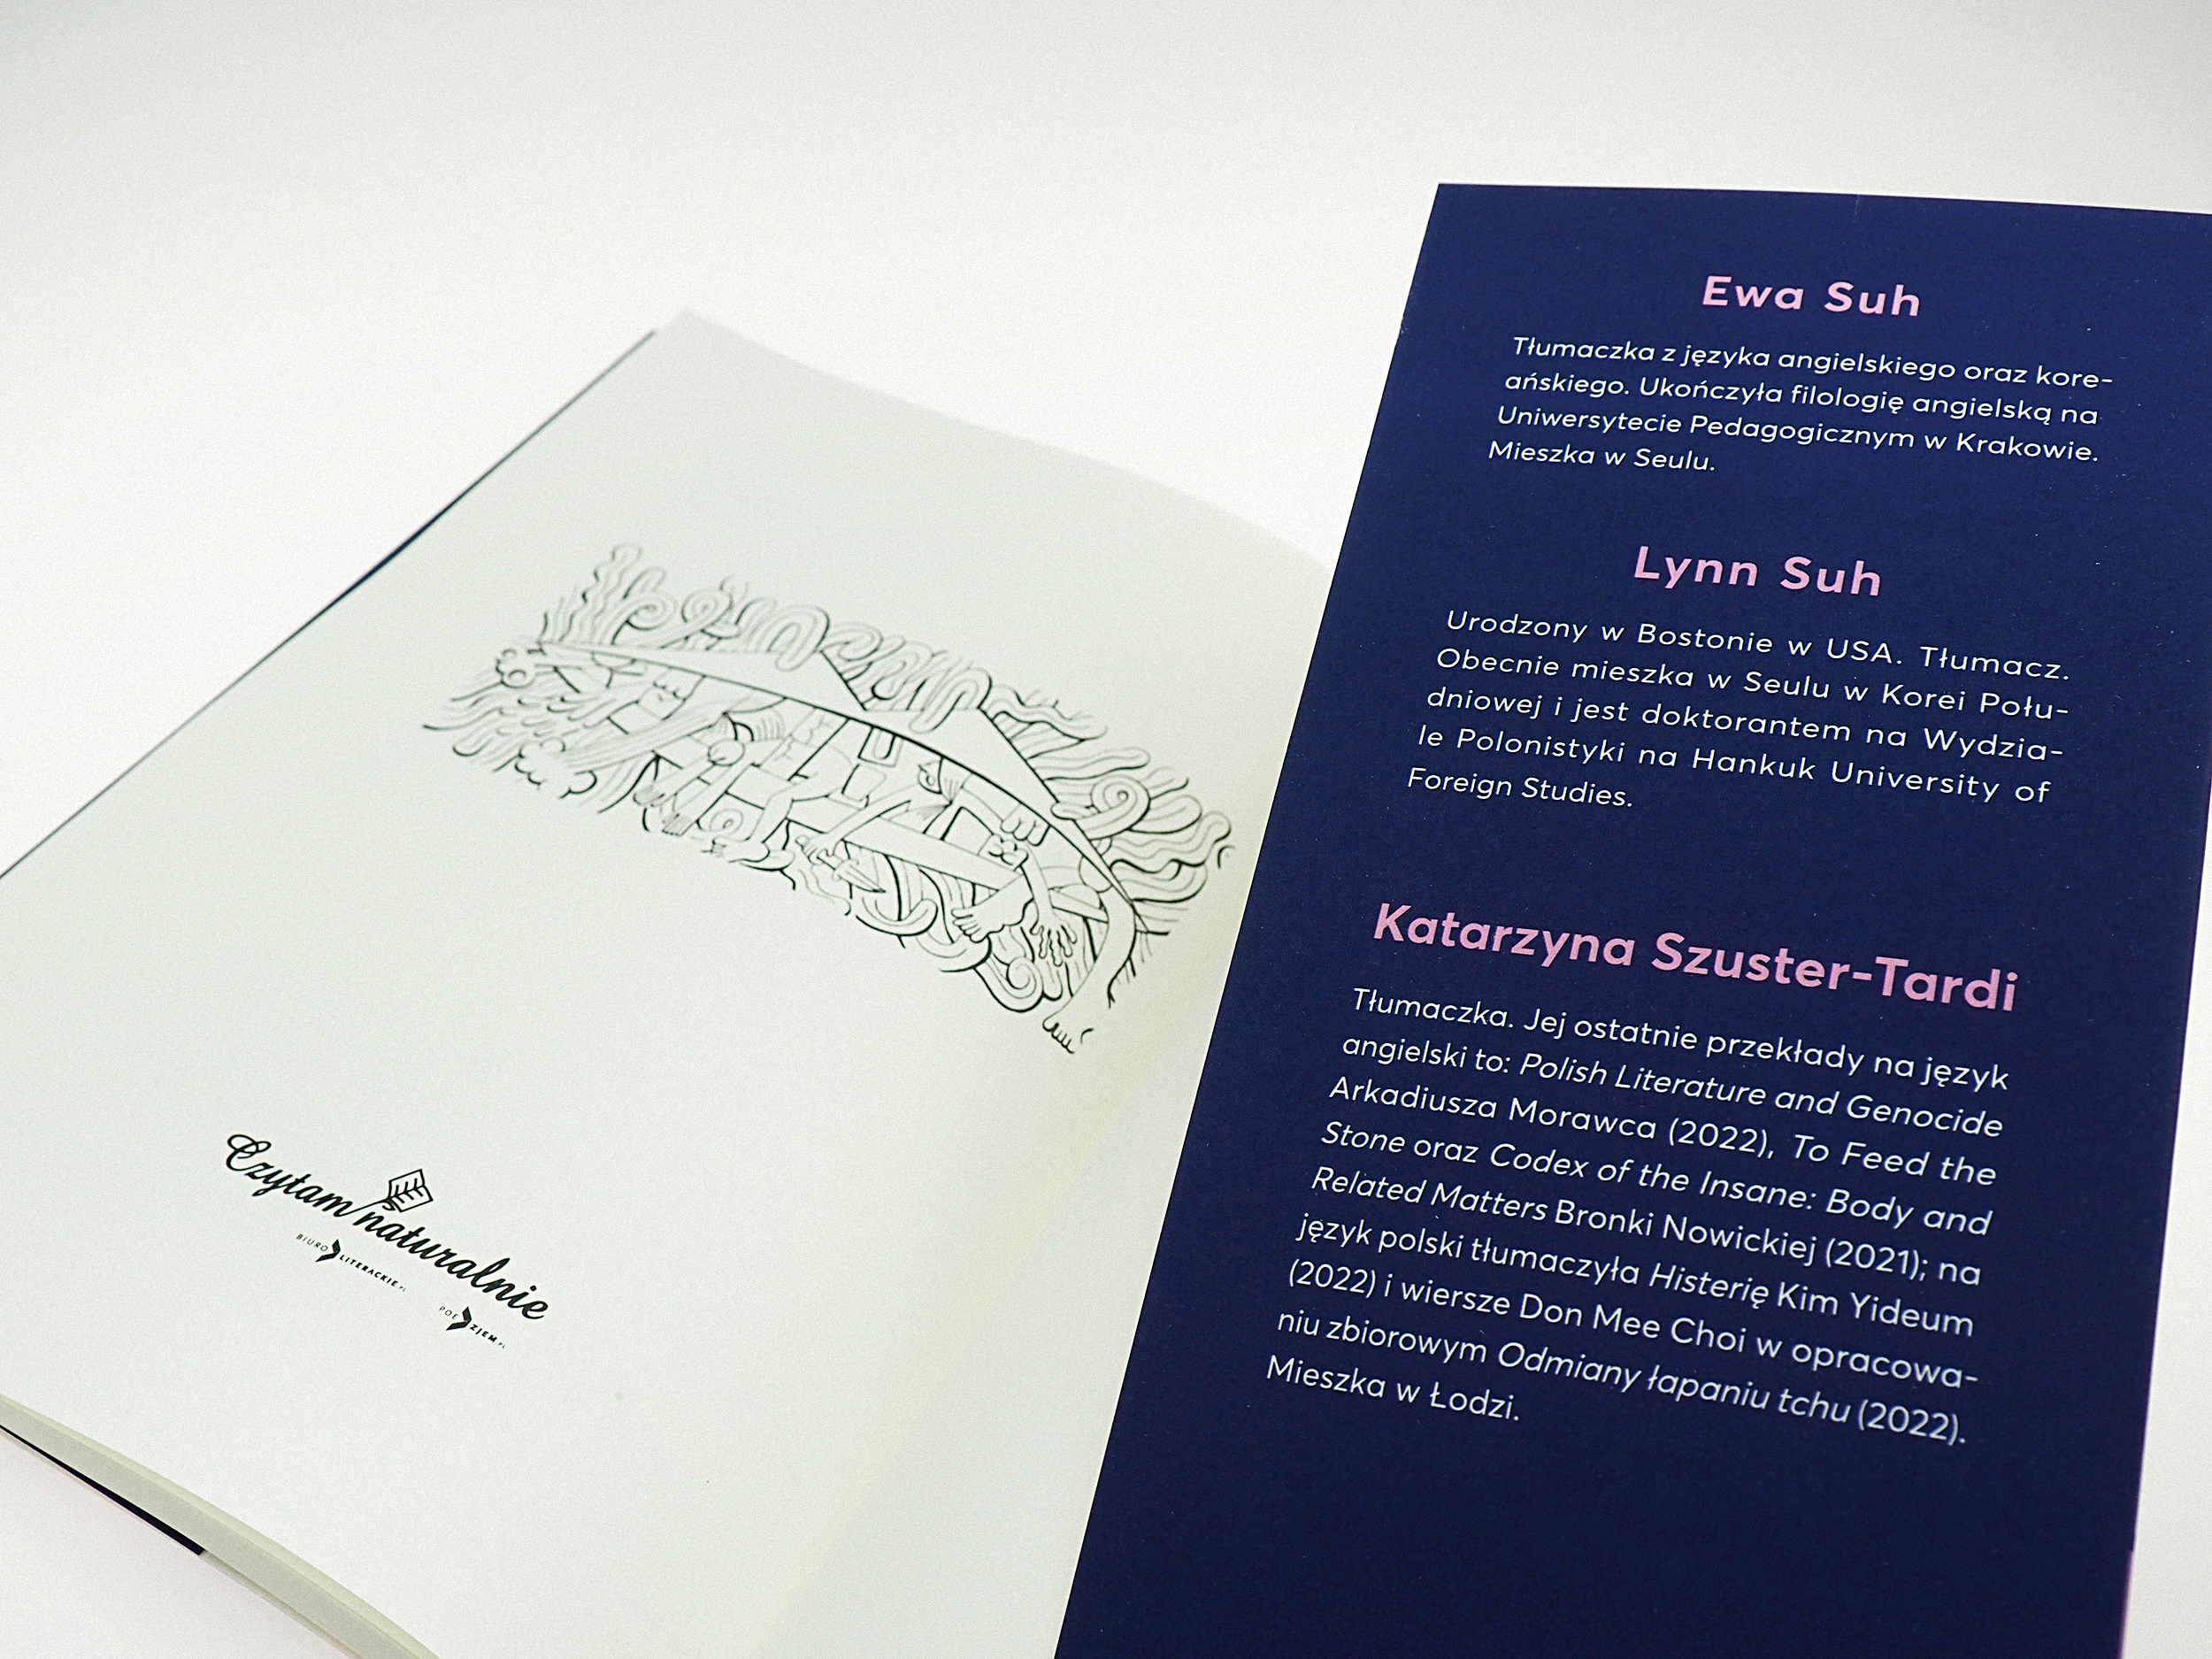 Czytam naturalnie
BIURO LITERACKIE.PL
POE ZJEM.PL
Ewa Suh
Tłumaczka z języka angielskiego oraz kore-
ańskiego. Ukończyła filologię angielską na
Uniwersytecie Pedagogicznym w Krakowie.
Mieszka w Seulu.
Lynn Suh
Urodzony w Bostonie w USA. Tłumacz.
Obecnie mieszka w Seulu w Korei Połu-
dniowej i jest doktorantem na Wydzia-
le Polonistyki na Hankuk University of
Foreign Studies.
Katarzyna Szuster-Tardi
Tłumaczka. Jej ostatnie przekłady na język
angielski to: Polish Literature and Genocide
Arkadiusza Morawca (2022), To Feed the
Stone oraz Codex of the Insane: Body and
Related Matters Bronki Nowickiej (2021); na
język polski tłumaczyła Histerię Kim Yideum
(2022) i wiersze Don Mee Choi w opracowa-
niu zbiorowym Odmiany łapaniu tchu (2022).
Mieszka w Łodzi.